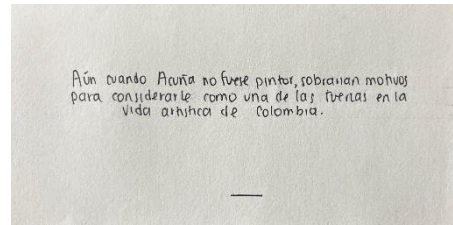 Aún cuando Acuña no fuese pintor, sobrarían motivos
para considerarle como una de las fuerzas en la
vida artística de Colombia.